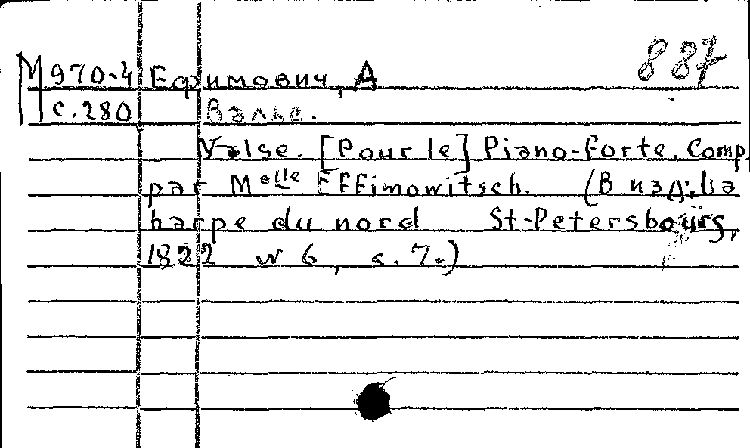 887
М 970-4 Ефимович, А
с. 280 Вальс.
Valse. [Pour le] Piano-forte. Comp.
par Melle Effimowitsch. (В изд. La
harpe du nord St-Petersbourg,
1822 № 6, с. 7.)